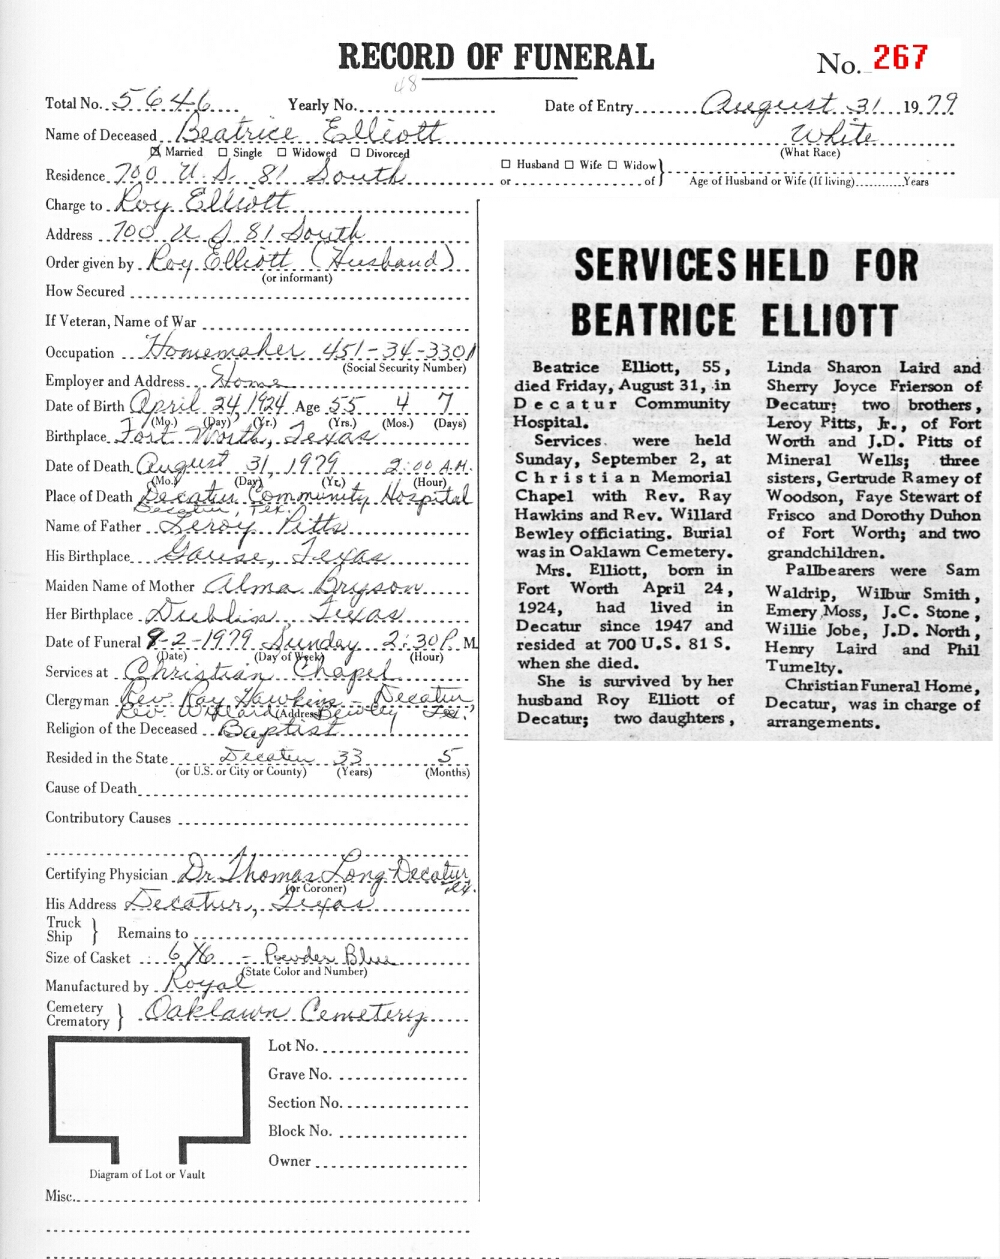 RECORD OF FUNERAL
No. 267
48
Total No. 5646 Yearly No. Date of Entry August 31 1979
Name of Deceased Beatrice Elliott White
☒ Married ☐ Single ☐ Widowed ☐ Divorced (What Race)
Residence 700 U.S. 81 South ☐ Husband ☐ Wife ☐ Widow
or of Age of Husband or Wife (If living) Years
Charge to Roy Elliott
Address 700 U S 81 South
Order given by Roy Elliott (Husband)
(or informant)
How Secured
If Veteran, Name of War
Occupation Homemaker 451-34-3301
(Social Security Number)
Employer and Address Home
Date of Birth April 24 1924 Age 55 4 7
(Mo.) (Day) (Yr.) (Yrs.) (Mos.) (Days)
Birthplace Fort Worth, Texas
Date of Death August 31, 1979 2:00 A.M.
(Mo.) (Day) (Yr.) (Hour)
Place of Death Decatur Community Hospital
Decatur, Tex.
Name of Father Leroy Pitts
His Birthplace Gause, Texas
Maiden Name of Mother Alma Bryson
Her Birthplace Dublin, Texas
Date of Funeral 9-2-1979 Sunday 2:30 P. M.
(Date) (Day of Week) (Hour)
Services at Christian Chapel
Clergyman Rev. Ray Hawkins - Decatur
Rev. Willard Bewley Tex.
(Address)
Religion of the Deceased Baptist
Resided in the State Decatur 33 5
(or U.S. or City or County) (Years) (Months)
Cause of Death
Contributory Causes
Certifying Physician Dr. Thomas Long Decatur
(or Coroner)
His Address Decatur, Texas
Truck
Ship } Remains to
Size of Casket 6/6 - Powder Blue
(State Color and Number)
Manufactured by Royal
Cemetery
Crematory } Oaklawn Cemetery
Lot No.
Grave No.
Section No.
Block No.
Owner
Diagram of Lot or Vault
Misc.
SERVICES HELD FOR
BEATRICE ELLIOTT
Beatrice Elliott, 55,
died Friday, August 31, in
Decatur Community
Hospital.
Services were held
Sunday, September 2, at
Christian Memorial
Chapel with Rev. Ray
Hawkins and Rev. Willard
Bewley officiating. Burial
was in Oaklawn Cemetery.
Mrs. Elliott, born in
Fort Worth April 24,
1924, had lived in
Decatur since 1947 and
resided at 700 U.S. 81 S.
when she died.
She is survived by her
husband Roy Elliott of
Decatur; two daughters,
Linda Sharon Laird and
Sherry Joyce Frierson of
Decatur; two brothers,
Leroy Pitts, Jr., of Fort
Worth and J.D. Pitts of
Mineral Wells; three
sisters, Gertrude Ramey of
Woodson, Faye Stewart of
Frisco and Dorothy Duhon
of Fort Worth; and two
grandchildren.
Pallbearers were Sam
Waldrip, Wilbur Smith,
Emery Moss, J.C. Stone,
Willie Jobe, J.D. North,
Henry Laird and Phil
Tumelty.
Christian Funeral Home,
Decatur, was in charge of
arrangements.